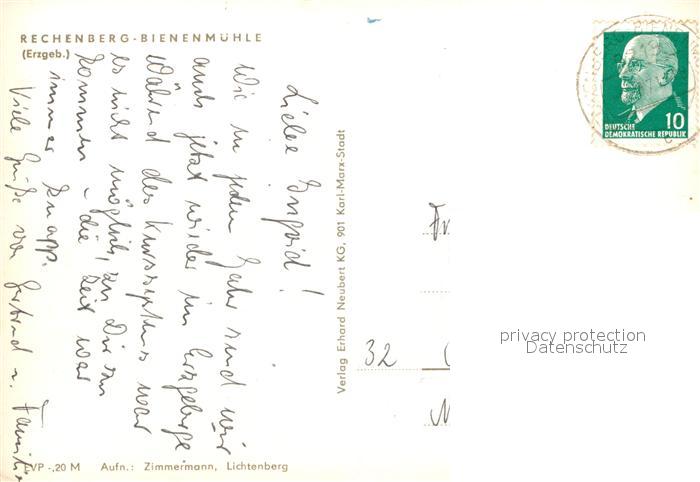 RECHENBERG-BIENENMÜHLE
(Erzgeb.)
Liebe Ingrid!
Wie in jedem Jahr sind wir
auch jetzt wieder im Erzgebirge
Während des Kurszyklus war
es nicht möglich, zu Dir zu
kommen - die Zeit war
immer knapp.
Viele Grüße von Gertrud u. Familie
EVP -,20 M Aufn.: Zimmermann, Lichtenberg
Verlag Erhard Neubert KG, 901 Karl-Marx-Stadt
10
DEUTSCHE
DEMOKRATISCHE REPUBLIK
32
privacy protection
Datenschutz